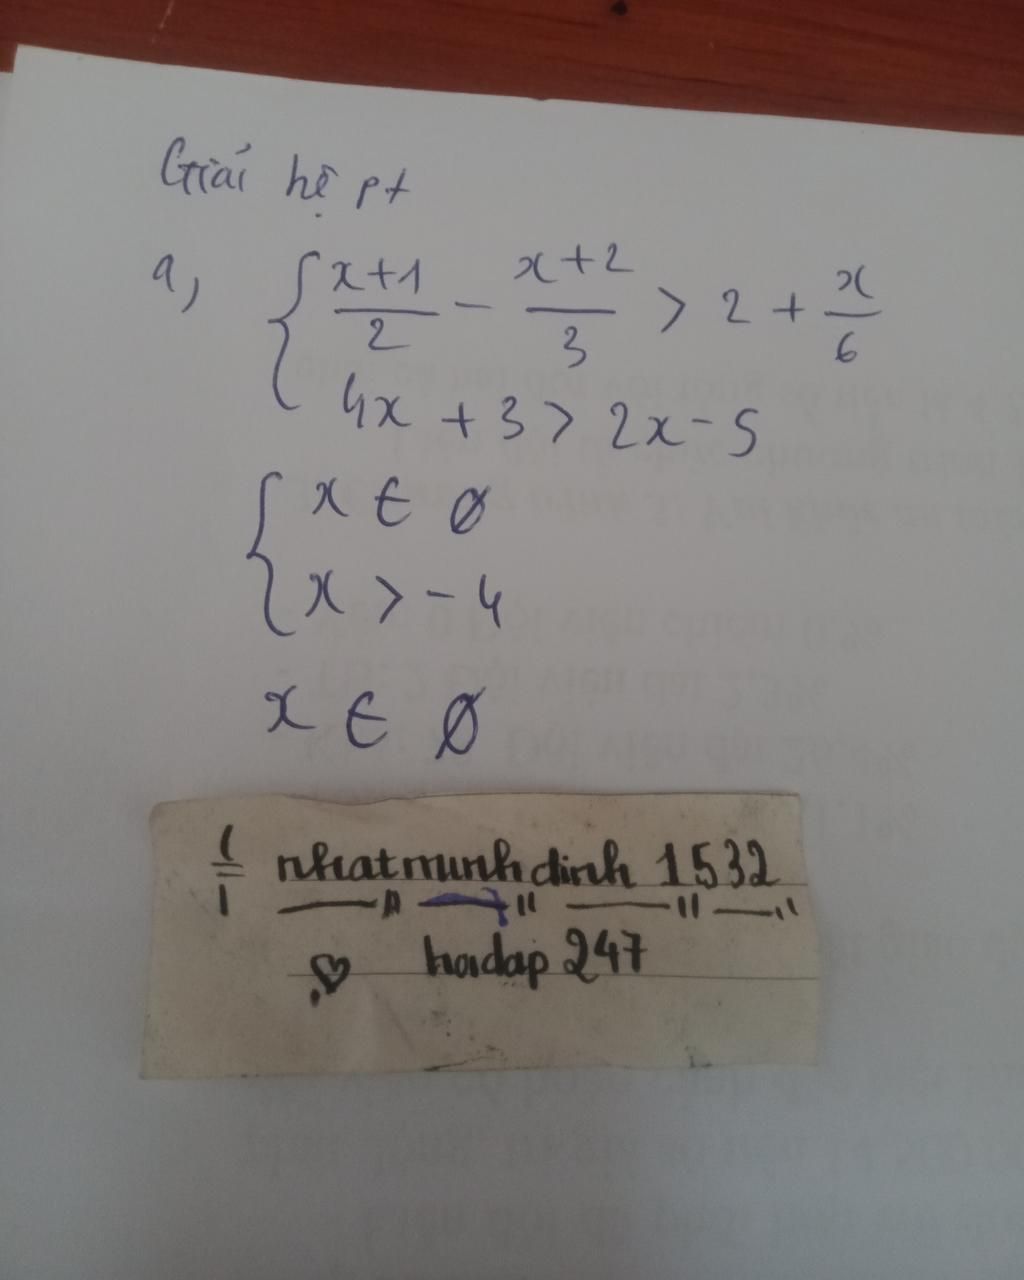 Giải hệ pt
a, { x+1/2 - x+2/3 > 2 + x/6
4x + 3 > 2x - 5
{ x ∈ ∅
x > - 4
x ∈ ∅
nhatminhdinh 1532
hoidap 247